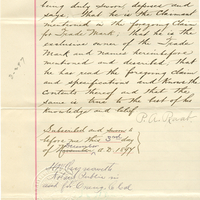 being duly sworn, deposes and
says, that he is the Claimant
mentioned in the foregoing Claim
for Trade Mark; that he is the
exclusive owner of the Trade
Mark and names hereinbefore
mentioned and described; that
he has read the foregoing claim
and specifications and knows the
contents thereof and that the
same is true to the best of his
knowledge and belief
Subscribed and sworn to
before me this 3rd day
of A.D. 1897
Notary Public in
and for Orange Co Cal